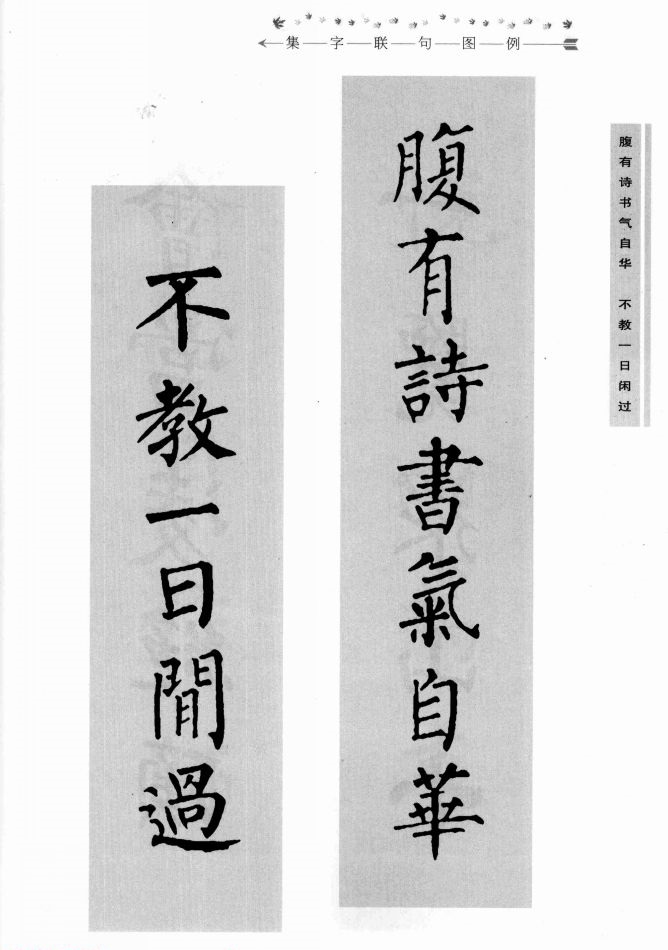 集字联句图例
腹有诗书气自华 不教一日闲过
腹有詩書氣自華
不教一日閒過